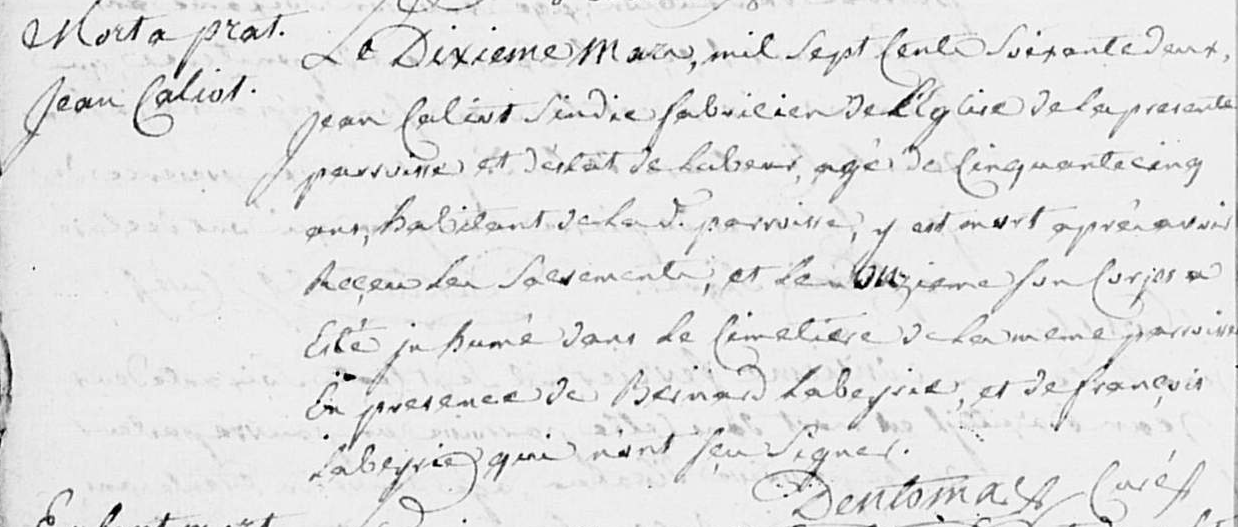 Mort a prat.
Jean Caliot.
Le Dixieme Mars, mil Sept Cents Soixante deux,
Jean Caliot Sindic fabricien de L'Eglise de la presente
parroisse et destat de Labeur, agé de Cinquante cinq
ans, habitant de la d. parroisse, y est mort aprés avoir
Reçeu Les Sacrements, et Le onzieme son Corps a
Esté jnhumé dans Le Cimetiere de La meme parroisse
En presence de Bernard Labeyrie, et de françois
Labeyrie qui n'ont sçeu Signer.
Dentomas Curé
Enfant mort